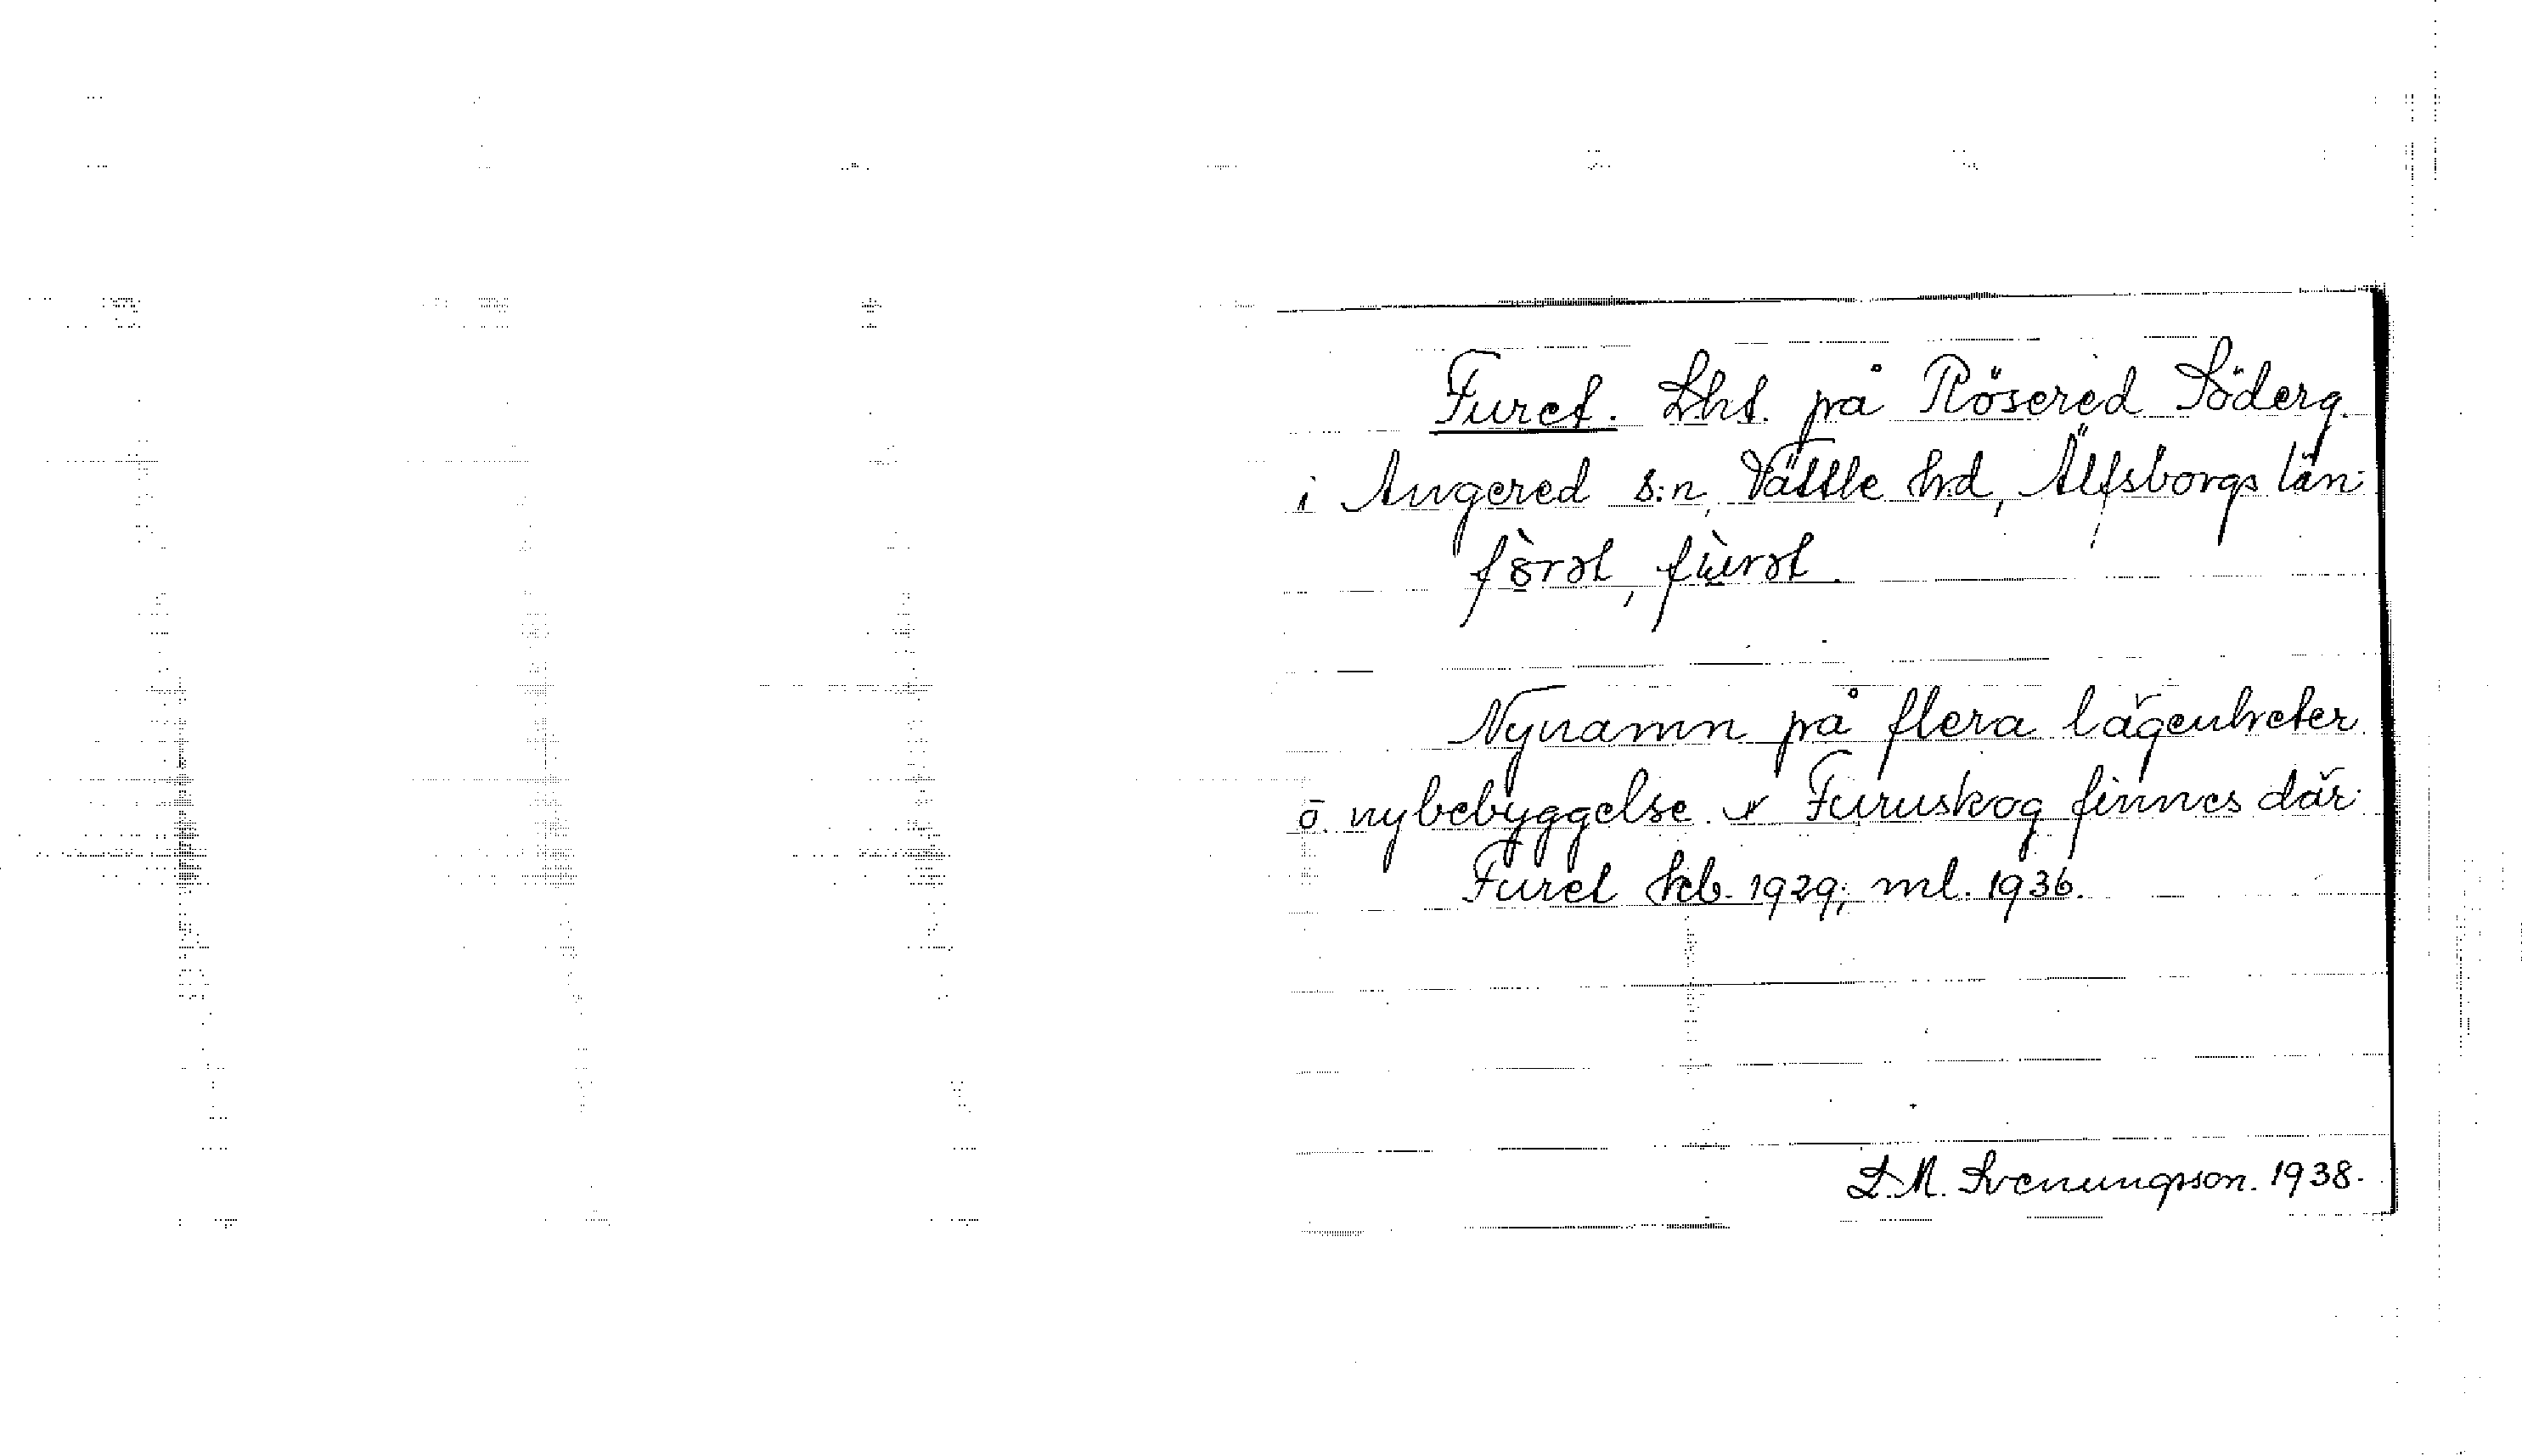 Furet. Lht. på Rösered Söderg.
i Angered s:n, Vättle hd, Älfsborgs län.
Nynamn på flera lägenheter
o. nybebyggelse. Furuskog finnes där.
Furet kb. 1929; ml. 1936.
D.M. Svenungsson. 1938.